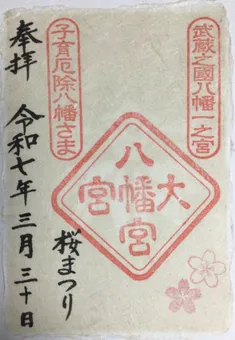 武蔵之國八幡一之宮
大宮八幡宮
子育厄除八幡さま
桜まつり
奉拝 令和七年三月三十日